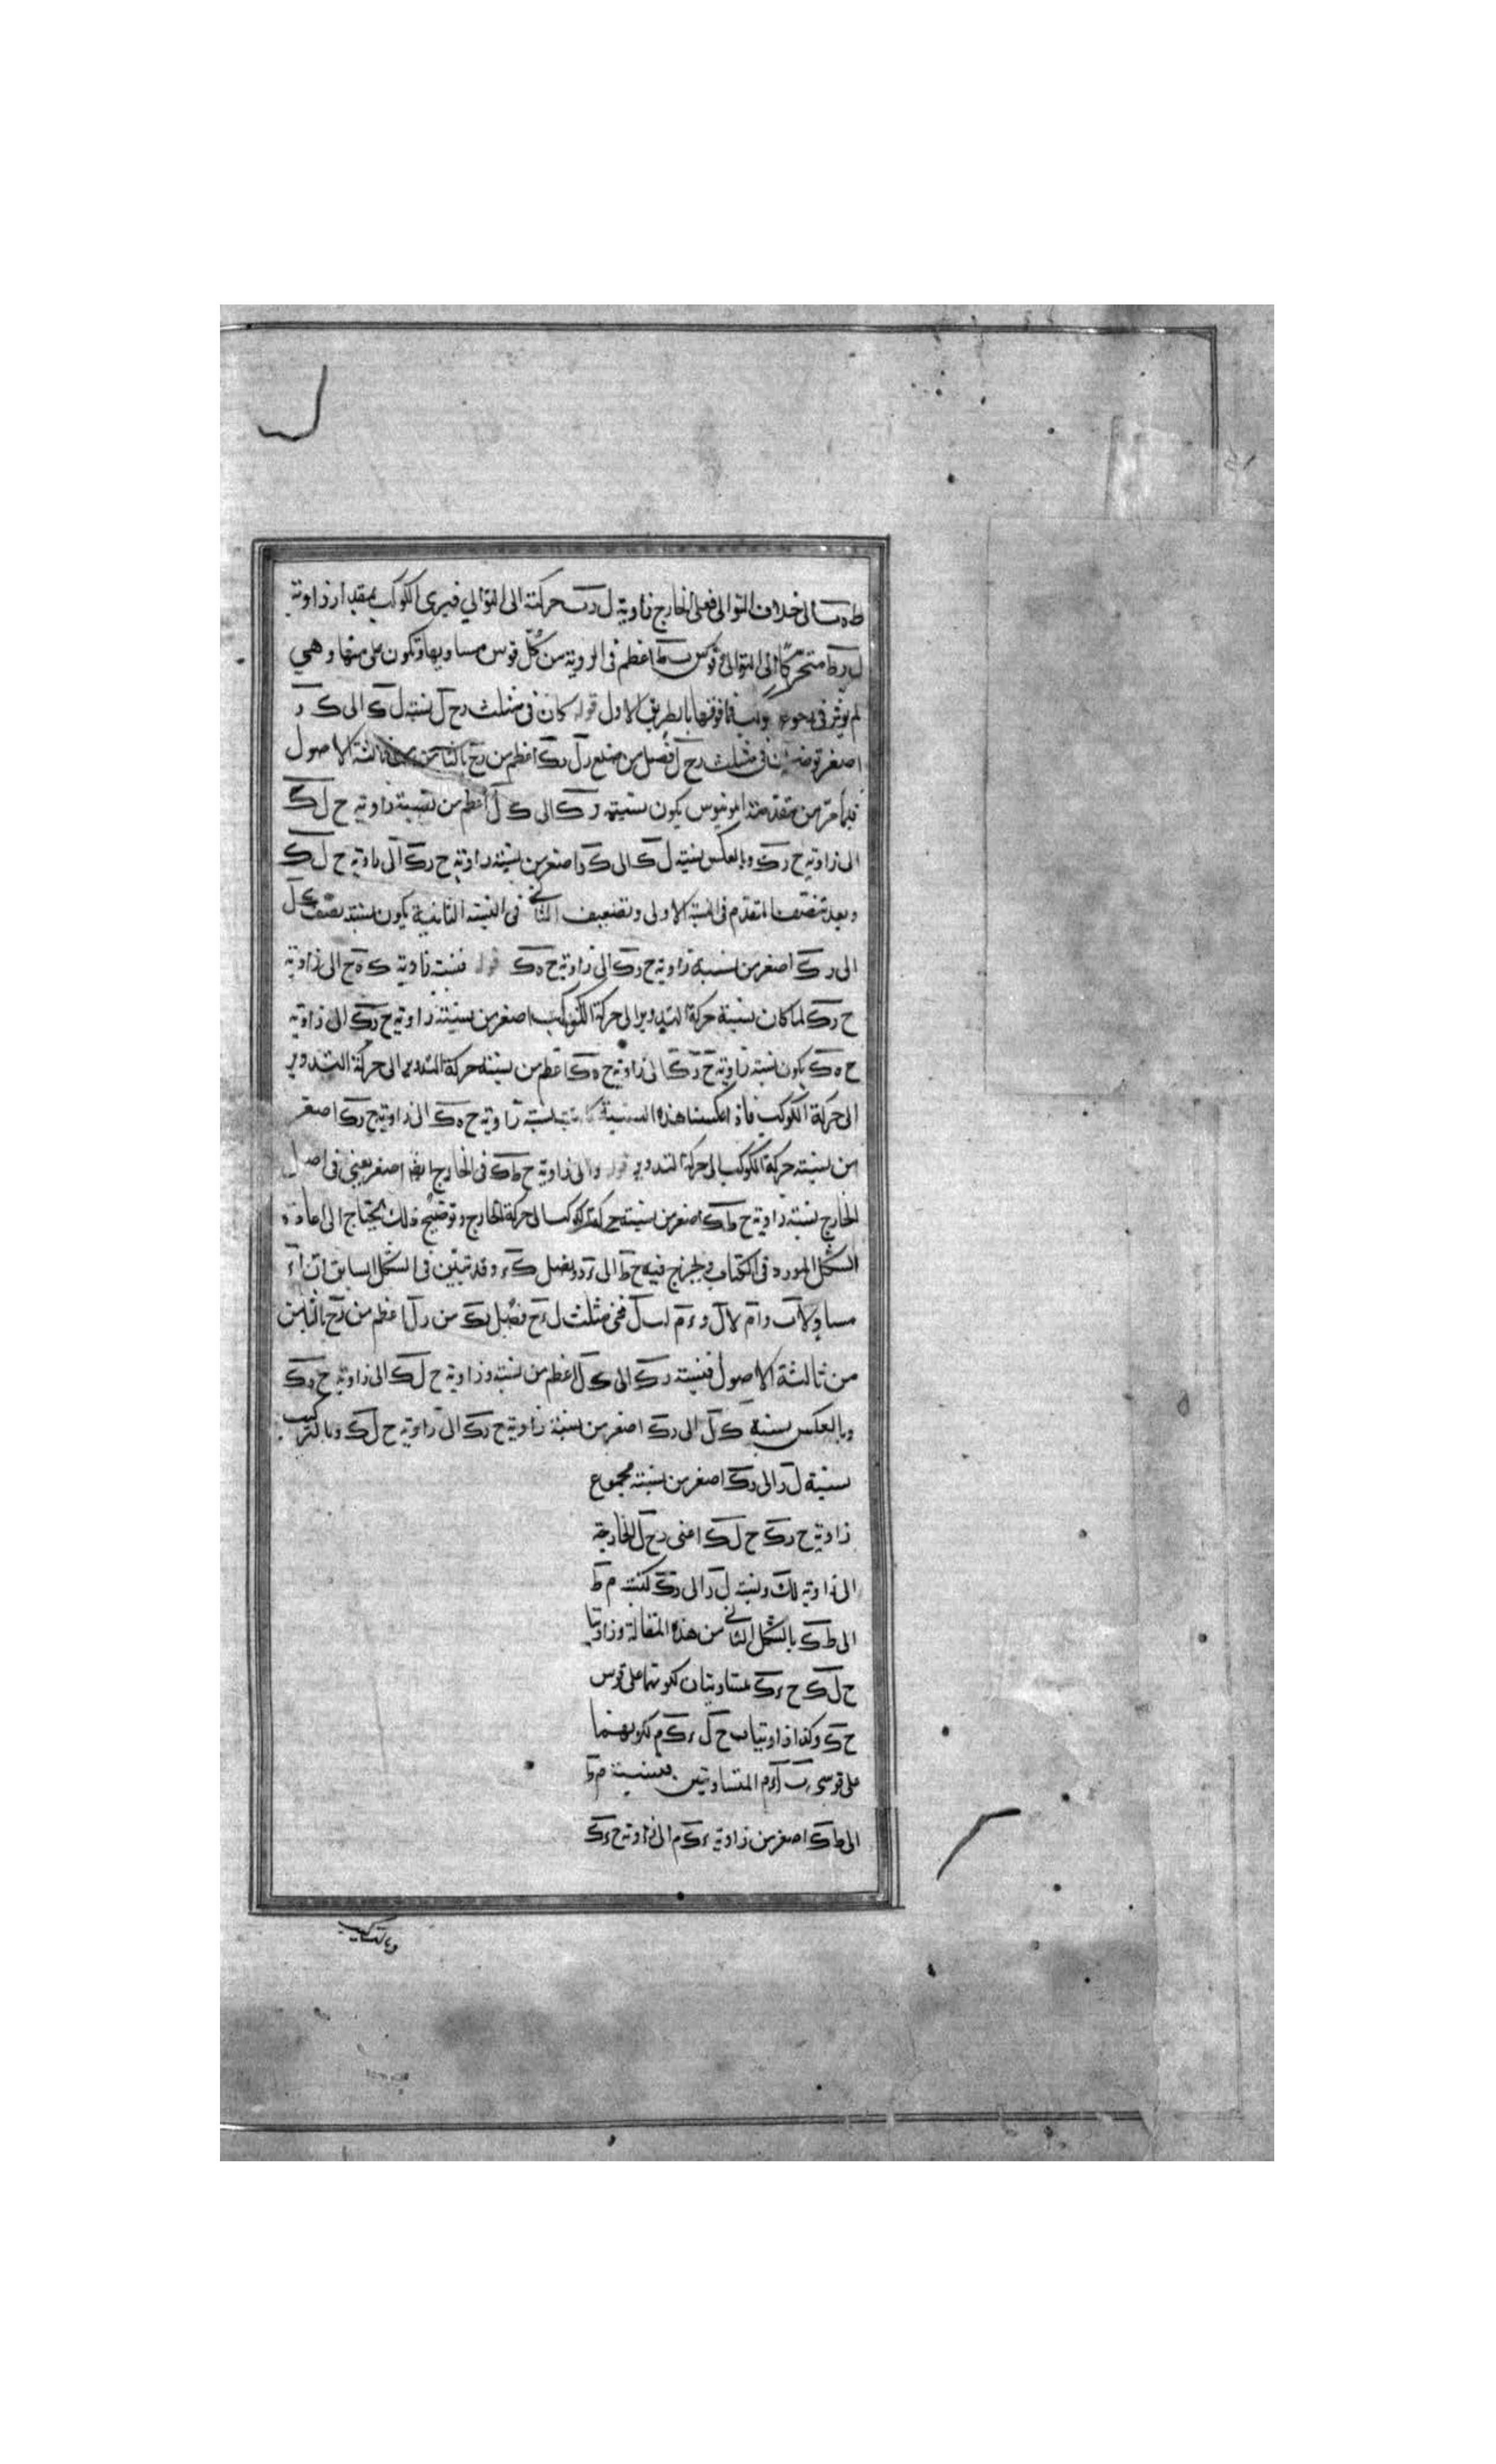 ط ه ب الى خلاف التوالى فعلى الخارج زاوية ل ر ب حركته الى التوالي فيرى الكوكب بمقدار زاوية
ل ر ط متحركًا الى التوالى وقوس ب ط اعظم فى الروية من كل قوس مساويها وتكون على منها وهي
لم يؤثر فى فما فوقها بالطريق الاول قوله كان فى مثلث ر ح ل نسبة ل ك الى ك ر
اصغر فى مثلث ر ح ل فصل من ضلع ر ل ر ك اعظم من ر ح بالثامن ثالثة الاصول
فيما مر من مقدمة ابلونيوس يكون نسبة ر ك الى ك ل اعظم من نسبة زاوية ح ل ك
الى زاوية ح ر ك وبالعكس نسبة ل ك الى ك ر اصغر من نسبة زاوية ح ر ك الى زاوية ح ل ك
وبعد تنصيف المتقدم فى النسبة الاولى وتضعيف الثانى فى النسبة الثانية يكون نسبة نصف ك ل
الى ر ك اصغر من نسبة زاوية ح ر ك الى زاوية ح ه ك قوله فنسبة زاوية ك ه ح الى زاوية
ح ر ك لما كان نسبة حركة التدوير الى حركة الكوكب اصغر من نسبة زاوية ح ر ك الى زاوية
ح ه ك يكون نسبة زاوية ح ر ك الى زاوية ح ه ك اعظم من نسبة حركة التدوير الى حركة التدوير
الى حركة الكوكب فاذا عكسنا هذه النسبة كانت نسبة زاوية ح ه ك الى زاوية ح ر ك اصغر
من نسبة حركة الكوكب الى حركة التدوير قوله والى زاوية ح ط ك فى الخارج ايضا اصغر يعنى فى اصل
الخارج نسبة زاوية ح ط ك اصغر من نسبة حركة الكوكب الى حركة الخارج وتوضيح ذلك يحتاج الى اعادة
الشكل المورد فى الكتاب ولنخرج فيه ح ط الى ء ونصل ك ء وقد تبين فى الشكل السابق ان ا ء
مساو لا ب و ا م لا ل و ء م ل ب ل ففى مثلث ل ر ح فصل ر ك من ر ل اعظم من ر ح بالثامن
من ثالثة الاصول فنسبة ر ك الى ك ل اعظم من نسبة زاوية ح ل ك الى زاوية ح ر ك
وبالعكس نسبة ك ل الى ر ك اصغر من نسبة زاوية ح ر ك الى زاوية ح ل ك وبالتركيب
نسبة ل ر الى ر ك اصغر من نسبة مجموع
زاوية ح ر ك ح ل ك اعنى ر ح ل الخارجة
الى زاوية ل ك ونسبة ل ر الى ر ك كنسبة م ط
الى ط ك بالشكل الثانى من هذه المقالة وزاويتا
ح ل ك ح ء ك متساويتان لكونهما على قوس
ح ك وكذا زاويتا ب ح ل ء ك م لكونهما
على قوسى ب ل ء م المتساويتين فنسبة م ط
الى ط ك اصغر من زاوية ء ك م الى زاوية ح ء ك
وبالتركيب